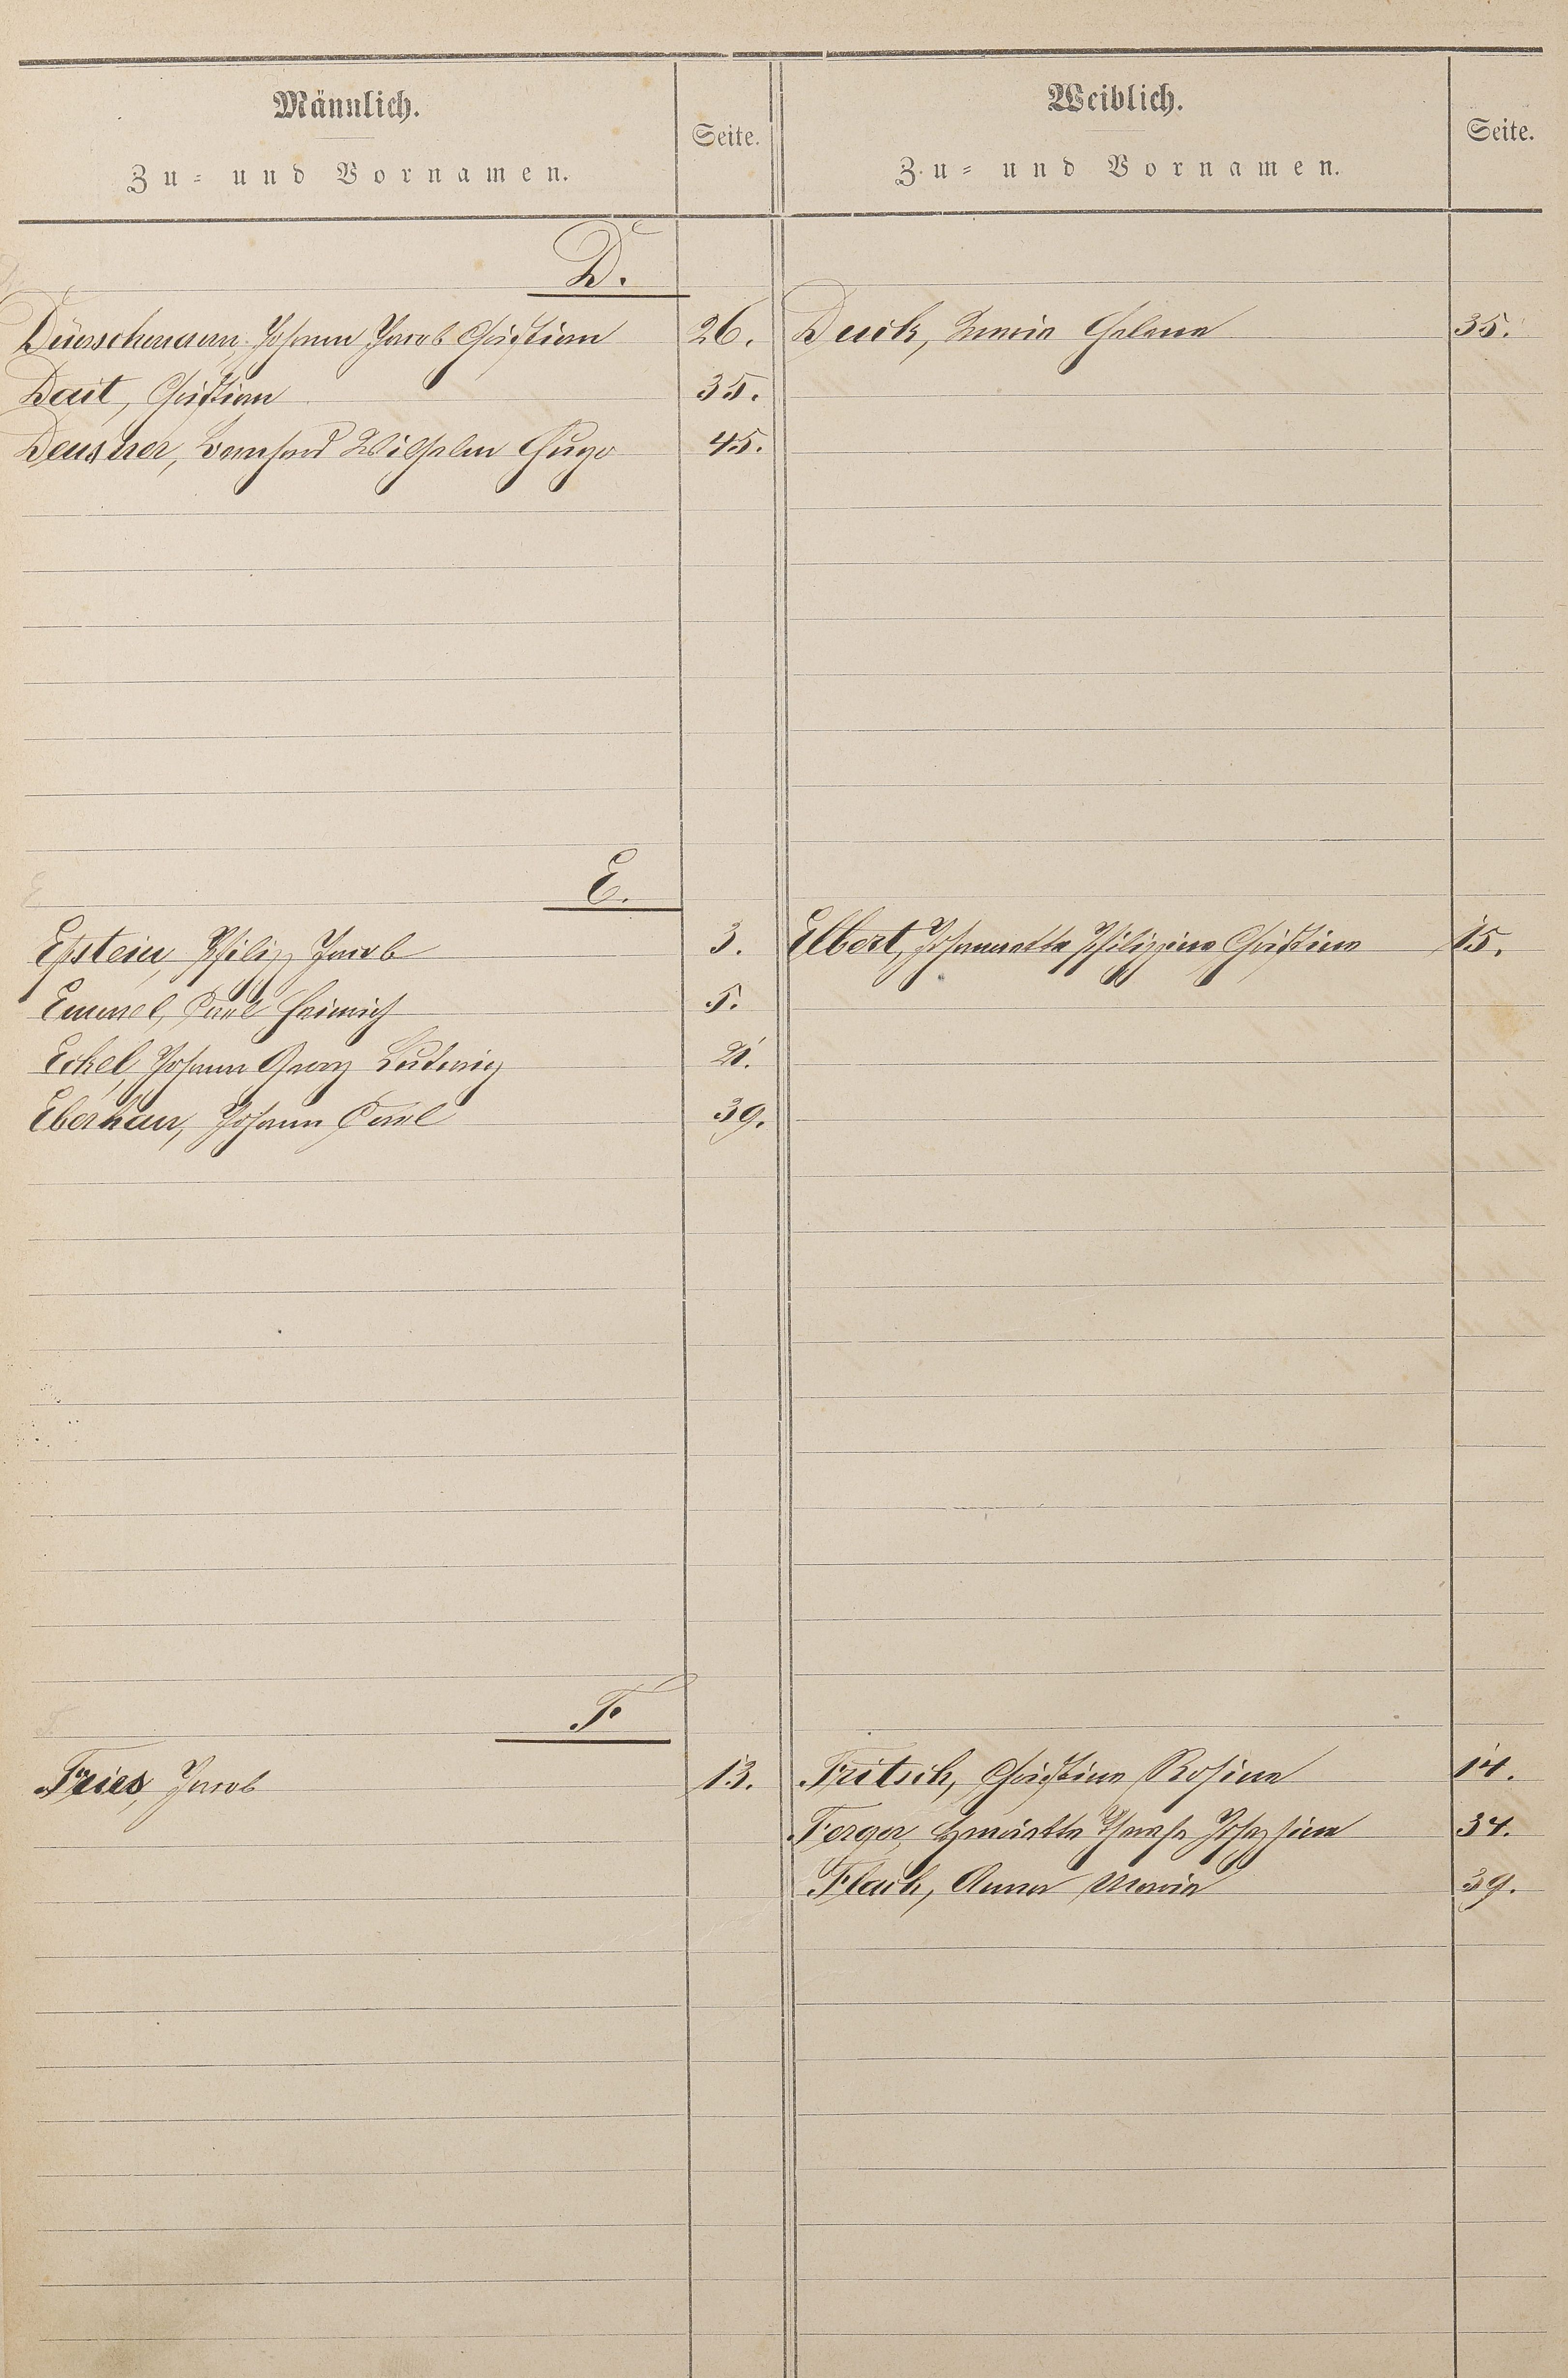 Männlich.
Zu- und Vornamen.
Seite.
Weiblich.
Zu- und Vornamen.
Seite.
D.
Dünschmann, Johann Jacob Christian 26.
Duck, Maria Helena 35.
Dait, Christian 35.
Deusner, Bernhard Wilhelm Hugo 45.
E.
Epstein, Philipp Jacob 3.
Elbert, Johannette Philippine Christine 15.
Emmel, Carl Heinrich 5.
Eckel, Johann Georg Ludwig 21.
Eberhan, Johann Carl 39.
F.
Fries, Jacob 13.
Fritsch, Christine Rosine 14.
Ferger, Henriette Therese Josephine 34.
Flach, Anna Maria 39.